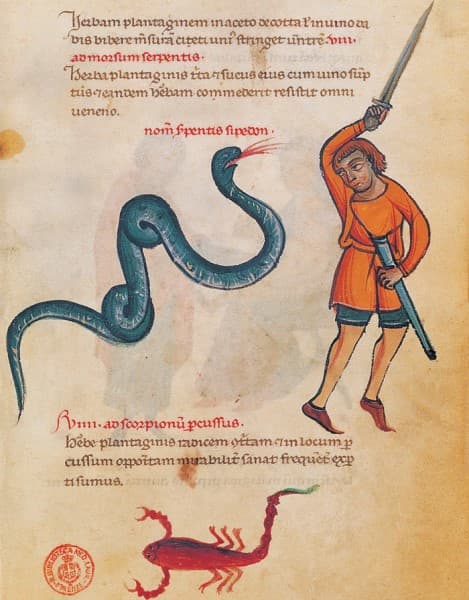 Herbam plantaginem in aceto decocta ł in uino da
bis bibere m̄surā citeti uni⁹ stringet uentrē. viii.
ad morsum serpentis.
Herba plantaginis t'ta ⁊ sucus eius cum uino sūp
tus ⁊ eandem h'bam commederit resistit omni
ueneno.
nom̄ s̄pentis sipedon.
Viiii. ad scorpionū p̄cussus.
h'be plantaginis radicem ⁊ in locum p̄
cussum mirabilit' sanat frequēt' exp̄
ti sumus.